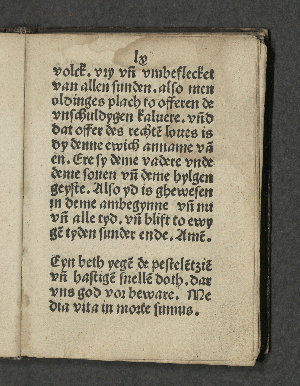 ly
volck. vry vñ vmbeflecket
van allen sunden. also men
oldinges plach to offeren de
vnschuldygen kaluere. vñd
dat offer des rechtẽ loues is
dy denne ewich anname vã
en. Ere sy deme vadere vnde
deme sonen vñ deme hylgen
geyste. Also yd is ghewesen
in deme ambegynne vñ nu
vñ alle tyd. vñ blift to ewy
gẽ tyden sunder ende. Amẽ.
Eyn beth yegẽ de pestelẽtziẽ
vñ hastigẽ snellẽ doth. dar
vns god vor beware. Me
dia vita in morte sumus.